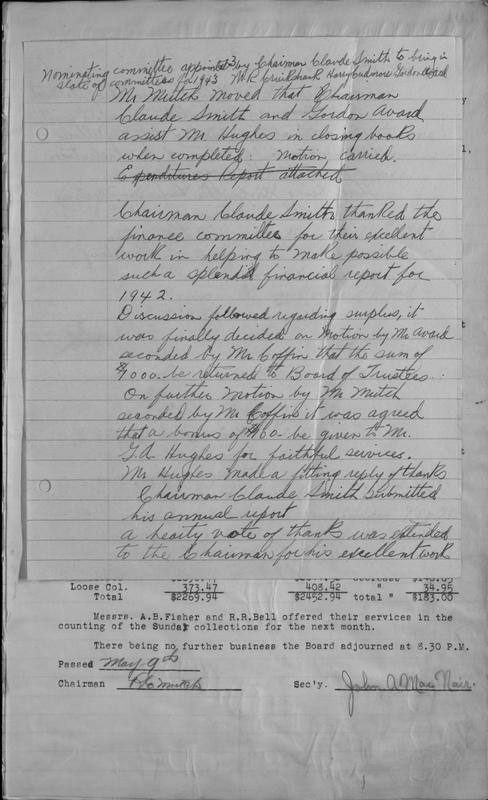 Nominating committee appointed 3 by Chairman Claude Smith to bring in
slate of committees for 1943 Mr R. Cruikshank Harry Cudmore Gordon Avard
Mr Mutch moved that Chairman
Claude Smith and Gordon Avard
assist Mr. Hughes in closing books
when completed. Motion carried.
Expenditures Report attached
Chairman Claude Smith thanked the
finance committee for their excellent
work in helping to make possible
such a splendid financial report for
1942.
Discussion followed regarding surplus, it
was finally decided on Motion by Mr Avard
seconded by Mr Coffin that the sum of
$1000- be returned to Board of Trustees.
On further Motion by Mr Mutch
seconded by Mr Coffin it was agreed
that a bonus of $60- be given to Mr.
G.A Hughes for faithful services.
Mr Hughes made a fitting reply of thanks
Chairman Claude Smith submitted
his annual report
a hearty vote of thanks was extended
to the Chairman for his excellent work
Loose Col. 373.47 408.42 " 34.95
Total $2269.94 $2452.94 total " $183.00
Messrs. A.B.Fisher and R.R.Bell offered their services in the
counting of the Sunday collections for the next month.
There being no further business the Board adjourned at 8.30 P.M.
Passed May 9th
Chairman Mutch Sec'y. John A Mac Nair.